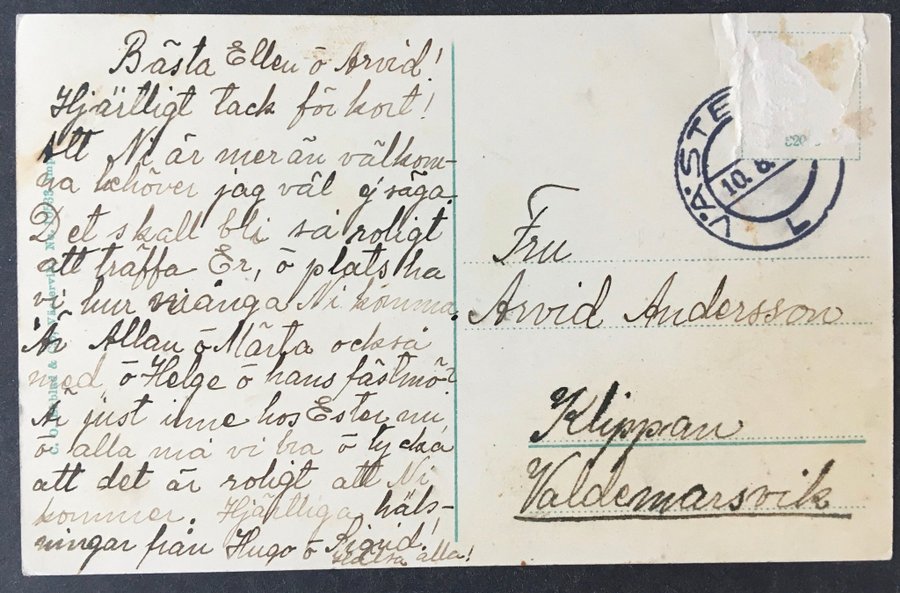 Bästa Ellen ō Arvid!
Hjärtligt tack för kort!
Att Ni är mer än välkom-
na behöver jag väl ej säga.
Det skall bli så roligt
att träffa Er, ō plats ha
vi hur många Ni komma.
Är Allan ō Märta också
med ō Helge ō hans fästmö?
Är just inne hos Ester nu
ō alla må vi bra ō tycka
att det är roligt att Ni
kommer. Hjärtliga häls-
ningar från Hugo ō Sigrid!
Hälsa alla!
VÄSTE
10. 8.
1
Fru
Arvid Andersson
Klippan
Valdemarsvik